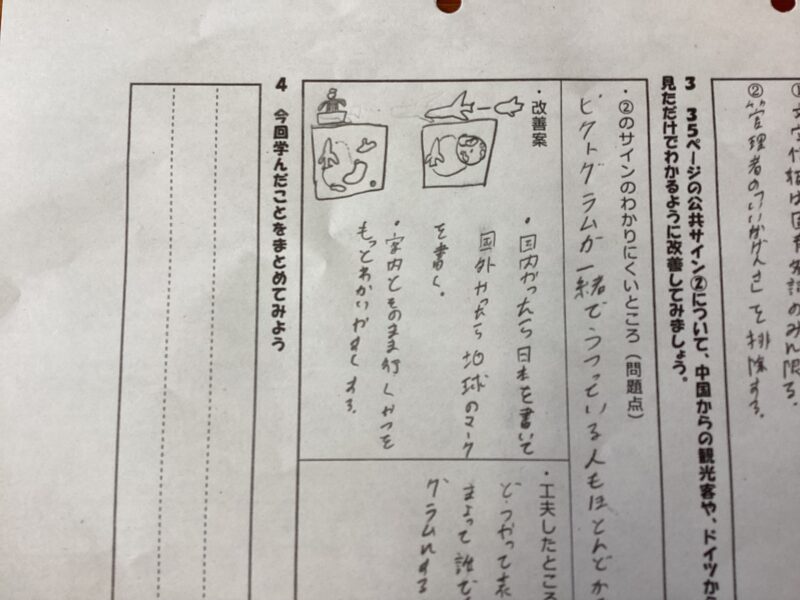 ① 文字
② 管理者の「いいかげんさ」を排除する。
3 35ページの公共サイン②について、中国からの観光客や、ドイツから
見ただけでわかるように改善してみましょう。
・②のサインのわかりにくいところ（問題点）
ピクトグラムが一緒でうつっている人もほとんど
・改善案
・国内だったら日本を書いて
国外だったら地球のマーク
を書く。
・案内とそのまま行くやつを
もっとわかりやすくする。
・工夫したところ
どうやって表
まよって誰で
グラムにする
4 今回学んだことをまとめてみよう